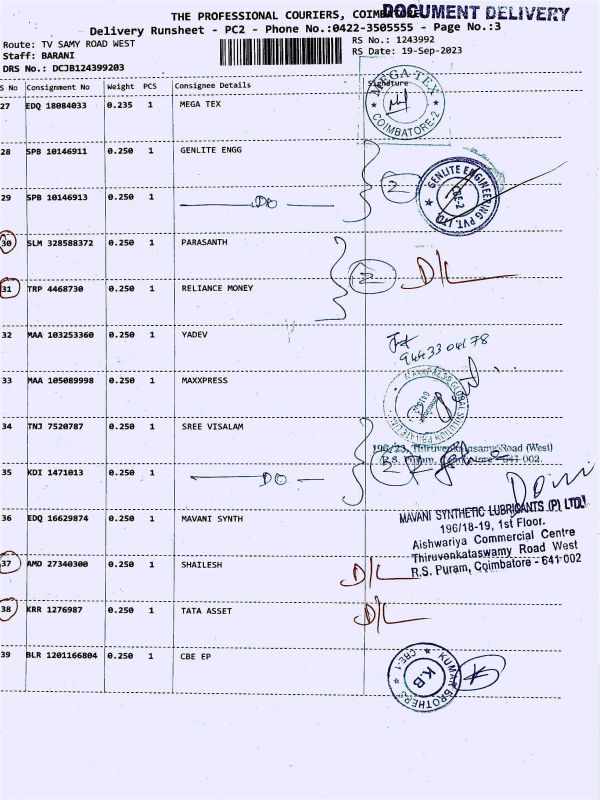 THE PROFESSIONAL COURIERS, COIMBATORE
DOCUMENT DELIVERY
Delivery Runsheet - PC2 - Phone No.:0422-3505555 - Page No.:3
Route: TV SAMY ROAD WEST
RS No.: 1243992
Staff: BARANI
RS Date: 19-Sep-2023
DRS No.: DCJB124399203
S No Consignment No Weight PCS Consignee Details Signature
27 EDQ 18084033 0.235 1 MEGA TEX
MEGA TEX
COIMBATORE-2
28 SPB 10146911 0.250 1 GENLITE ENGG
2
GENLITE ENGINEERING PVT. LTD.
CBE-2
29 SPB 10146913 0.250 1 DO
30 SLM 328588372 0.250 1 PARASANTH
2 D/L
31 TRP 4468730 0.250 1 RELIANCE MONEY
32 MAA 103253360 0.250 1 YADEV
33 MAA 105089998 0.250 1 MAXXPRESS
34 TNJ 7520787 0.250 1 SREE VISALAM
196/23, Thiruvenkatasamy Road (West)
R.S. Puram, Coimbatore - 641 002.
35 KDI 1471013 0.250 1 DO
36 EDQ 16629874 0.250 1 MAVANI SYNTH
MAVANI SYNTHETIC LUBRICANTS (P) LTD.
196/18-19, 1st Floor.
Aishwariya Commercial Centre
Thiruvenkataswamy Road West
R.S. Puram, Coimbatore - 641 002
37 AMD 27340300 0.250 1 SHAILESH D/L
38 KRR 1276987 0.250 1 TATA ASSET D/L
39 BLR 1201166804 0.250 1 CBE EP
KUMAR BROTHERS
CBE-1
K.B